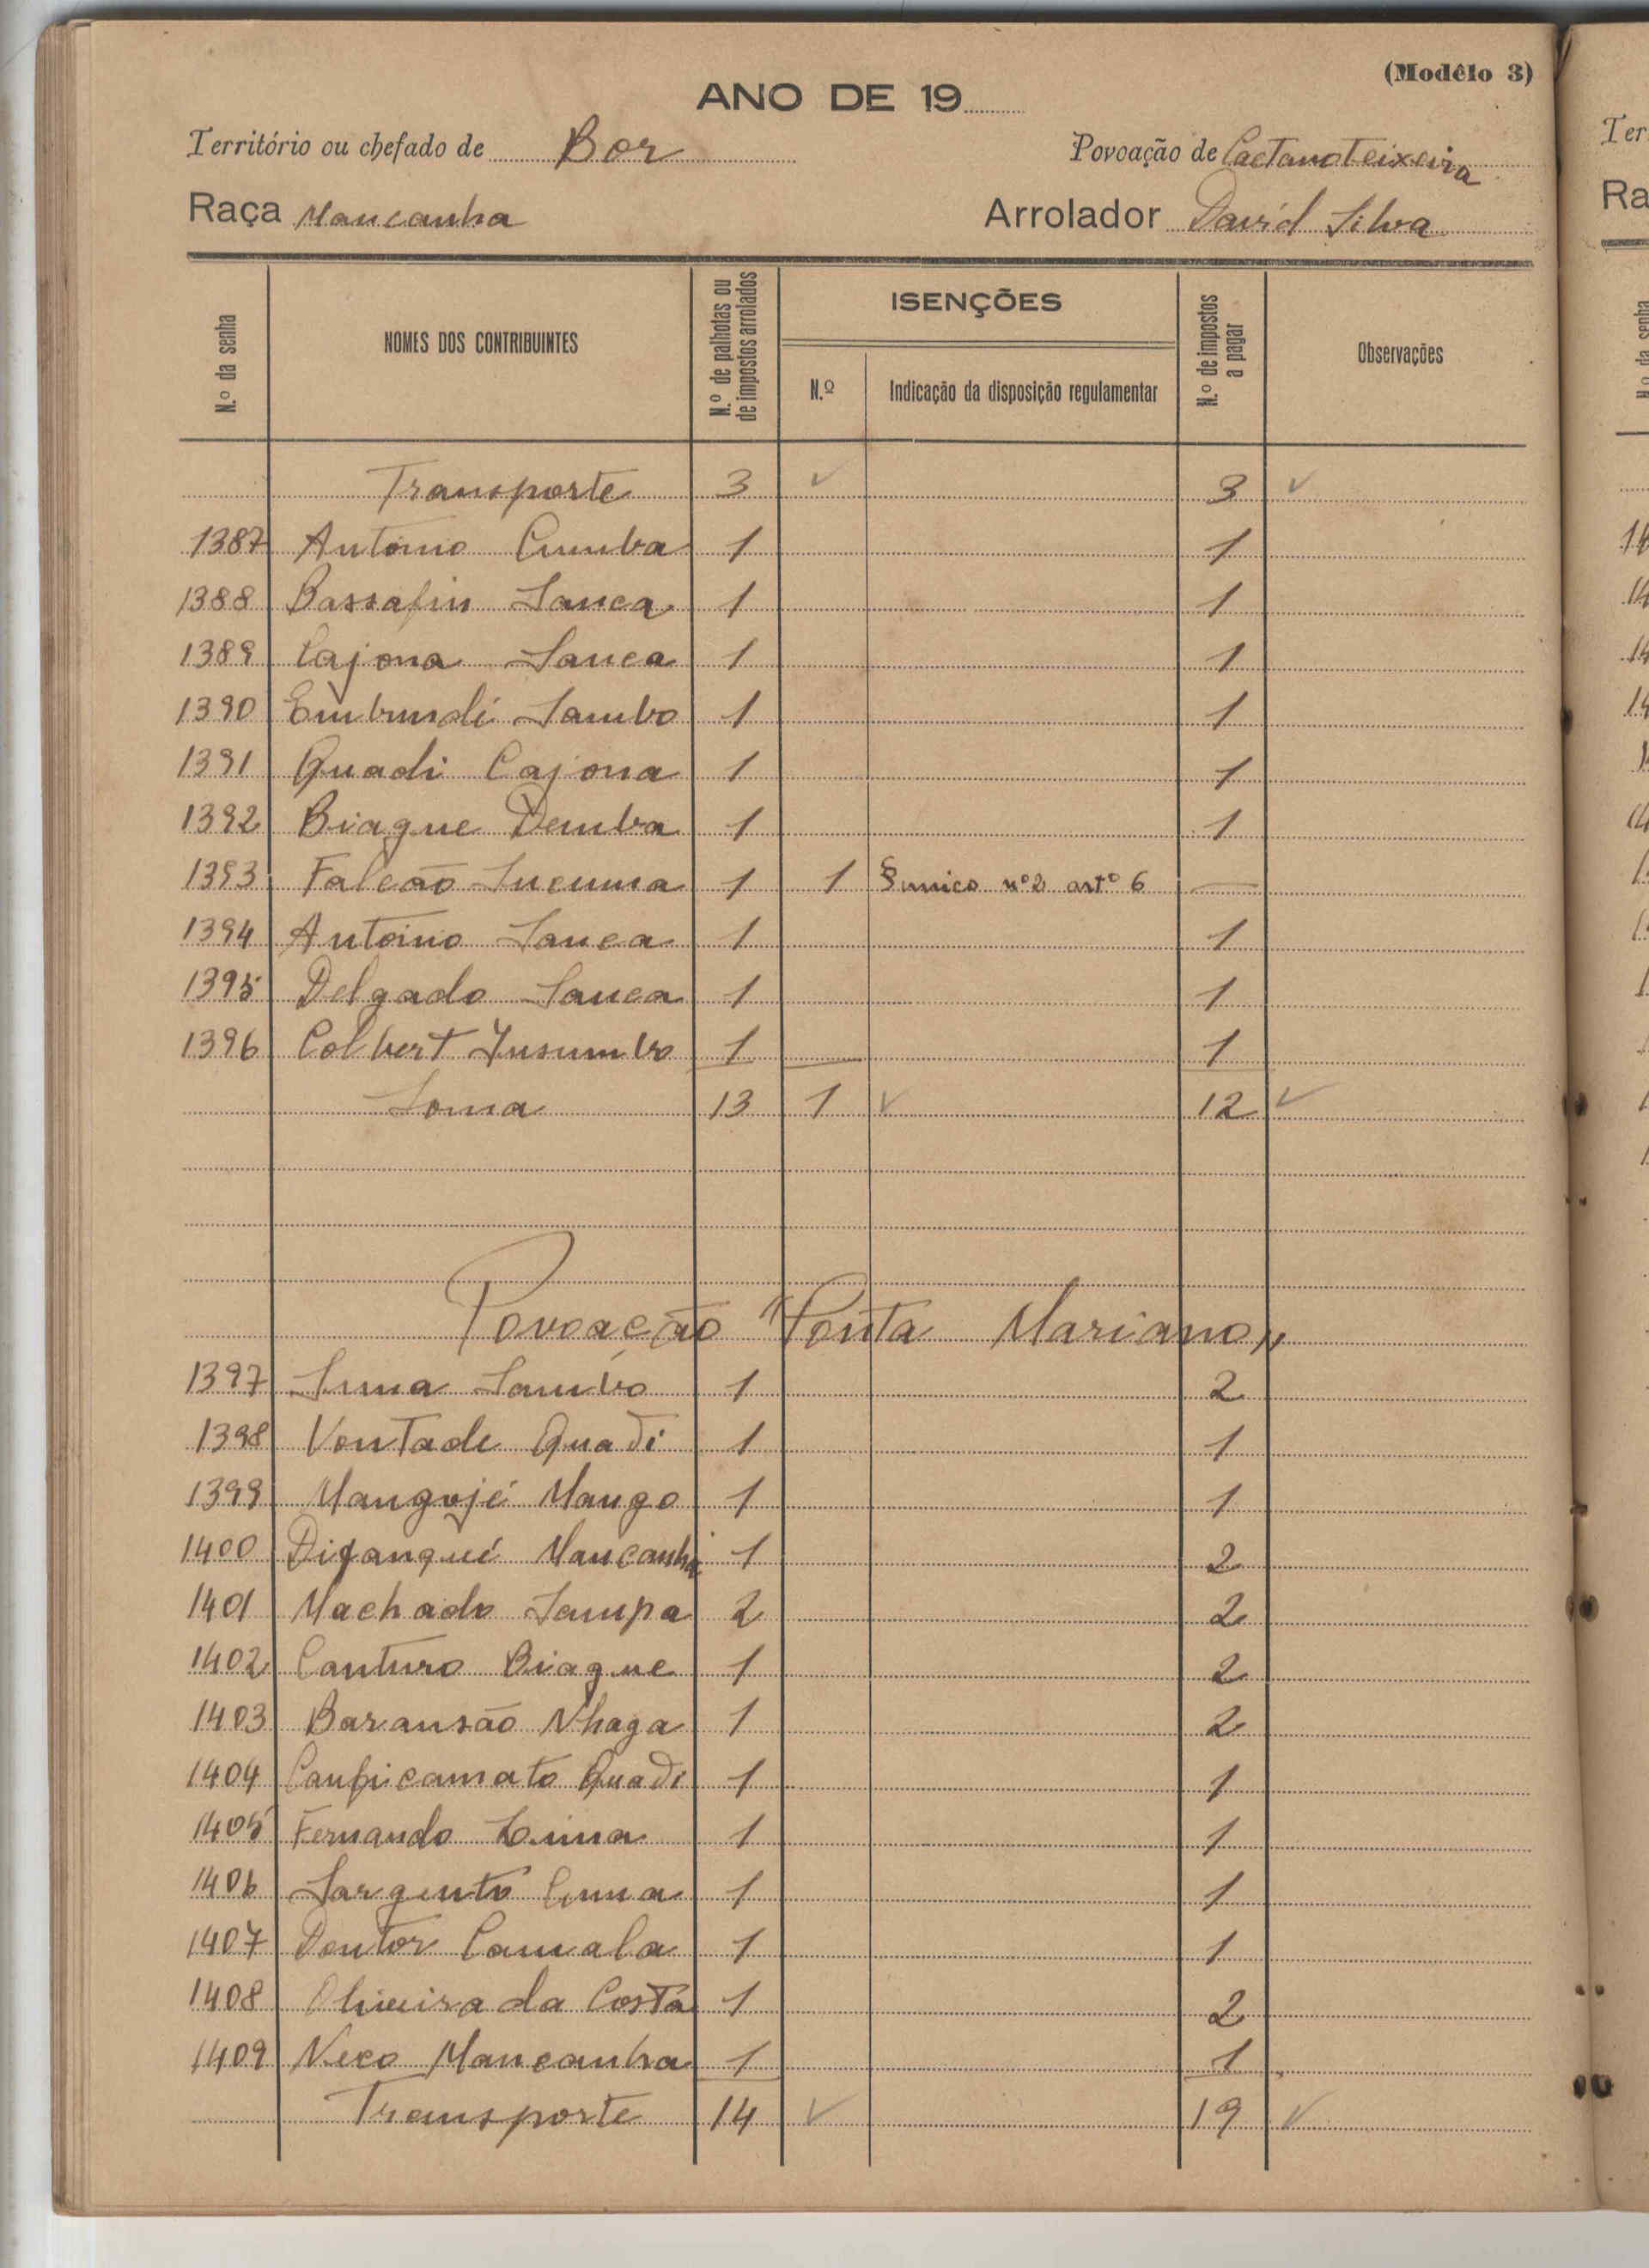 (Modêlo 3)
ANO DE 19
Território ou chefado de Bor Povoação de Caetano Teixeira
Raça Mancanha Arrolador David Silva
N.º da senha NOMES DOS CONTRIBUINTES N.º de palhotas ou de impostos arrolados ISENÇÕES N.º Indicação da disposição regulamentar N.º de impostos a pagar Observações
Transporte 3 ✓ 3 ✓
1387 António Cumba 1 1
1388 Bassafin Sanca 1 1
1389 Cajona Sanca 1 1
1390 Embundi Sambo 1 1
1391 Quadi Cajona 1 1
1392 Biague Demba 1 1
1393 Falcão Sucuma 1 1 § unico nº 2 artº 6 —
1394 António Sanca 1 1
1395 Delgado Sanca 1 1
1396 Colbert Jusumbo 1 1
Soma 13 1 ✓ 12 ✓
Povoação "Ponta Mariano„
1397 Suna Sambo 1 2
1398 Vontade Quadi 1 1
1399 Mangojé Mango 1 1
1400 Mancanha 1 2
1401 Machado Sampa 2 2
1402 Canturo Biague 1 2
1403 Baransão Nhaga 1 2
1404 Quadi 1 1
1405 Fernando 1 1
1406 Sargento 1 1
1407 Doutor Camala 1 1
1408 Oliveira da Costa 1 2
1409 Neco Mancanha 1 1
Transporte 14 ✓ 19 ✓
Ter
Ra